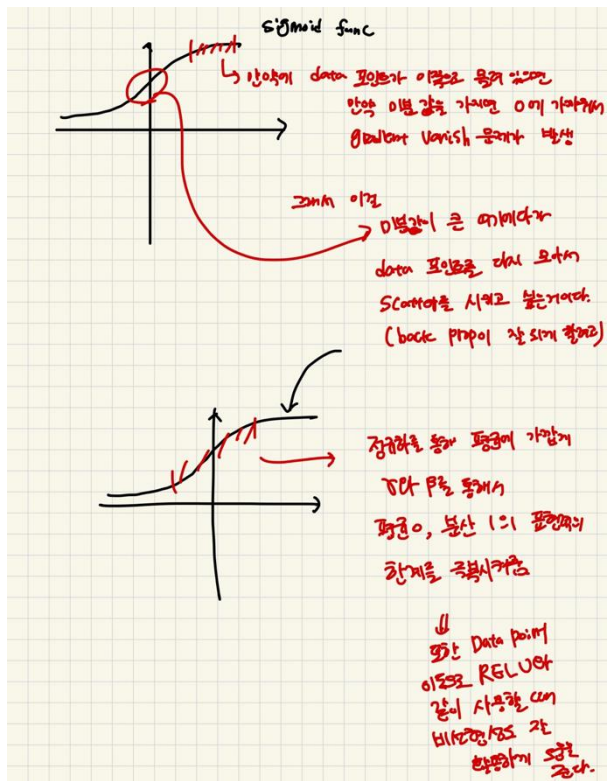 sigmoid func
만약에 data 포인트가 이쪽으로 몰려 있으면
만약 미분 값을 가지면 0에 가까워서
gradient vanish 문제가 발생
그래서 이걸
미분값이 큰 여기에다가
data 포인트를 다시 모아서
시키고 싶은거이다.
(back prop이 잘 되게 할려고)
정규화를 통해 평균에 가깝게
γ와 β를 통해서
평균 0, 분산 1의 표현력의
한계를 극복시켜줌
또한 Data point
이동으로 RELU와
같이 사용할 때
비선형성도 잘
하게
준다.